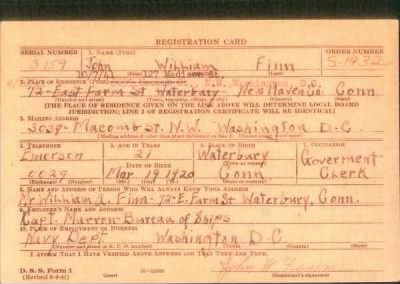 REGISTRATION CARD
SERIAL NUMBER 1. NAME (Print) ORDER NUMBER
3159 John William Finn S-1932
10/7/41 127 Madison St.
(First) (Middle) (Last)
2. PLACE OF RESIDENCE (Print)
72-East Farm St Waterbury New Haven Co. Conn
(Number and street) (Town, township, village, or city) (County) (State)
[THE PLACE OF RESIDENCE GIVEN ON THE LINE ABOVE WILL DETERMINE LOCAL BOARD
JURISDICTION; LINE 2 OF REGISTRATION CERTIFICATE WILL BE IDENTICAL]
3. MAILING ADDRESS
3039-Macomb St. N.W. Washington D-C
4. TELEPHONE 5. AGE IN YEARS 6. PLACE OF BIRTH 7. OCCUPATION
Emerson 21 Waterbury Goverment
DATE OF BIRTH
0029 Mar 19 1920 Conn Clerk
8. NAME AND ADDRESS OF PERSON WHO WILL ALWAYS KNOW YOUR ADDRESS
Mr William A. Finn-72-E. Farm St Waterbury, Conn.
9. EMPLOYER'S NAME AND ADDRESS
Capt. Marron-Bureau of Ships
10. PLACE OF EMPLOYMENT OR BUSINESS
Navy Dept Washington D-C
(Number and street or R. F. D. number) (Town) (County) (State)
I AFFIRM THAT I HAVE VERIFIED ABOVE ANSWERS AND THAT THEY ARE TRUE.
D. S. S. Form 1
(Revised 6-9-41) John W Finn
(Registrant's signature)